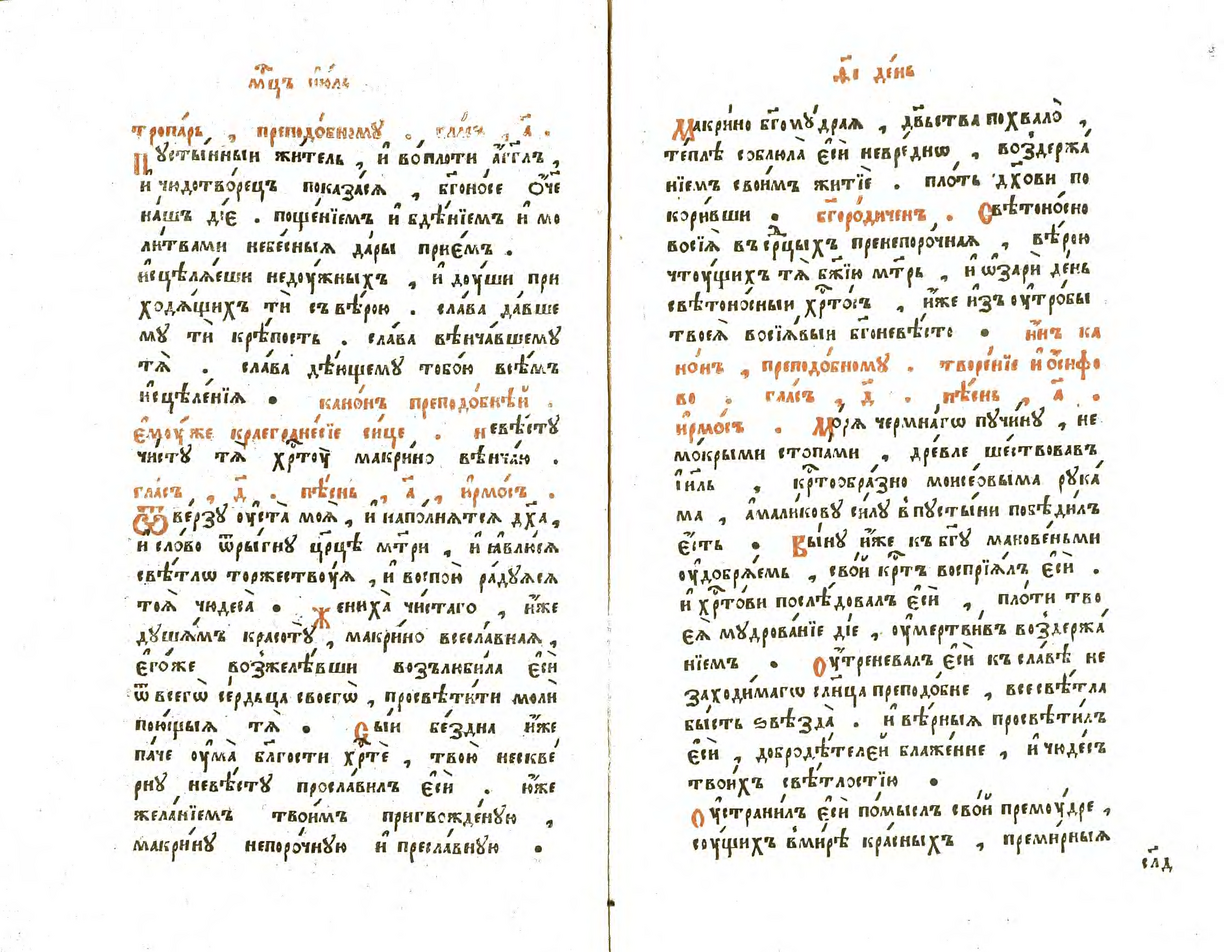 мцⷭ҇ъ і҆ю́лѧ
тропа́рь , преподо́бному . гла́съ , а҃ .
Пꙋсты́нныи жи́тель , и҆ во́плоти а҆́гг҃лъ ,
и҆ чюдотво́рецъ показа́сѧ , бг҃оно́се ѻ҆́ч҃е
на́шъ ді́е . поще́нїемъ и҆ бдѣ́нїемъ и҆ мо
ли́твами небе́сныѧ да́ры прие́мъ .
и҆сцѣлѧ́еши недоу́жныхъ , и҆ доу́ши при
ходѧ́щихъ тѝ съ вѣ́рою . сла́ва да́вше
мꙋ тѝ крѣ́пость . сла́ва вѣнча́вшемꙋ
тѧ̀ . сла́ва дѣ́ющемꙋ тобо́ю всѣ́мъ
и҆сцѣле́нїѧ • кано́нъ преподо́бнѣй .
є҆моу́же краегранесїе си́це . невѣ́стꙋ
чи́стꙋ тѧ̀ хрⷭ҇тоу макри́но вѣнча́ю .
гла́съ , д҃ . пѣ́снь , а҃ , і҆рмо́съ .
Ѿве́рзꙋ оу҆ста̀ моѧ̀ , и҆ напо́лнѧтсѧ дх҃а ,
и҆ сло́во ѿры́гнꙋ цр҃цѣ мт҃ри , и҆ ꙗ҆влю́сѧ
свѣ́тлѡ торжествоу́ѧ , и҆ воспою̀ ра́дꙋѧсѧ
тоѧ̀ чюдеса̀ • Жениха̀ чи́стаго , и҆́же
дꙋша́мъ красотꙋ̀ , макри́но всесла́внаѧ ,
є҆го́же возжелѣ́вши возълюби́ла є҆сѝ
ѿ всегѡ̀ се́рдьца своегѡ̀ , просвѣти́ти молѝ
пою́щыѧ тѧ̀ • Сы́и бе́здна и҆́же
па́че оу҆ма̀ бл҃гости хрⷭ҇тѐ , твою̀ нескве́
рнꙋ невѣ́стꙋ просла́вилъ є҆сѝ . ю҆́же
жела́нїемъ твои́мъ пригвожде́нꙋю ,
макри́нꙋ непоро́чнꙋю и҆ пресла́внꙋю •
ѳ҃і де́нь
Макри́но бг҃омꙋ́драѧ , дв҃ьства похвало̀ ,
те́плѣ соблюла̀ є҆сѝ невре́днѡ , воздержа́
нїемъ свои́мъ житїѐ . пло́ть дх҃ови по
кори́вши • бг҃оро́диченъ . Свѣтоно́сно
восїѧ̀ въ срⷣцыхъ пренепоро́чнаѧ , вѣ́рою
чтоу́щихъ тѧ̀ бж҃їю мт҃рь , и҆ ѡ҆зарѝ де́нь
свѣтоно́сныи хрⷭ҇то́съ , и҆́же и҆зъ оу҆тро́бы
твоеѧ̀ восїѧ́выи бг҃оневѣ́сто • и҆́нъ ка
но́нъ , преподо́бномꙋ . творе́нїе и҆ѻ҆́сифо
во . гла́съ , д҃ . пѣ́снь , а҃ .
і҆рмо́съ . Мо́рѧ чермна́гѡ пꙋчи́нꙋ , не
мо́крыми стопа́ми , дре́вле ше́ствовавъ
і҆и҃ль , крⷭ҇тообра́зно моисео́выма рꙋка́
ма , а҆мали́ковꙋ си́лꙋ в пꙋсты́ни побѣди́лъ
є҆́сть • Вы́нꙋ и҆́же къ бг҃ꙋ манове́ньми
оу҆добрѧ́емь , сво́й крⷭ҇тъ воспрїѧ́лъ є҆сѝ .
и҆ хрⷭ҇то́ви послѣ́довалъ є҆сѝ , пло́ти тво
еѧ̀ мꙋдрова́нїе ді́е , оу҆мертви́въ воздержа́
нїемъ • Оу҆́треневалъ є҆сѝ къ сла́вѣ не
заходи́магѡ сл҃нца преподо́бне , всесвѣ́тла
бы́сть ѕвѣзда̀ . и҆ вѣ́рныѧ просвѣти́лъ
є҆сѝ , доброде́телей блаже́нне , и҆ чюде́съ
твои́хъ свѣ́тлостїю •
Оу҆страни́лъ є҆сѝ по́мыслъ сво́й премоу́дре ,
соу́щихъ в ми́рѣ кра́сныхъ , преми́рныѧ
сл҃д